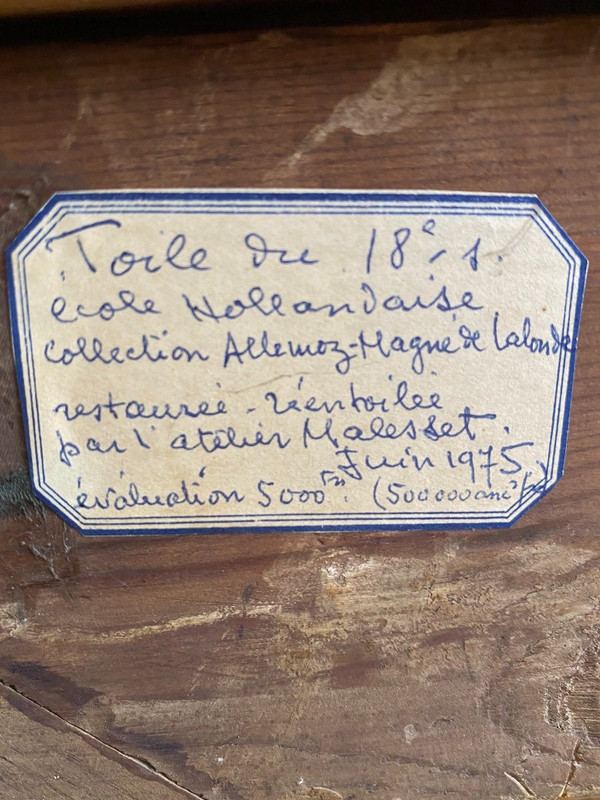 Toile du 18e. s.
école Hollandaise
Collection Allemoz-Magne de Lalonde
restaurée - réentoilée
par l'atelier Malesset.
Juin 1975
évaluation 5000 Frs. (500 000 anc